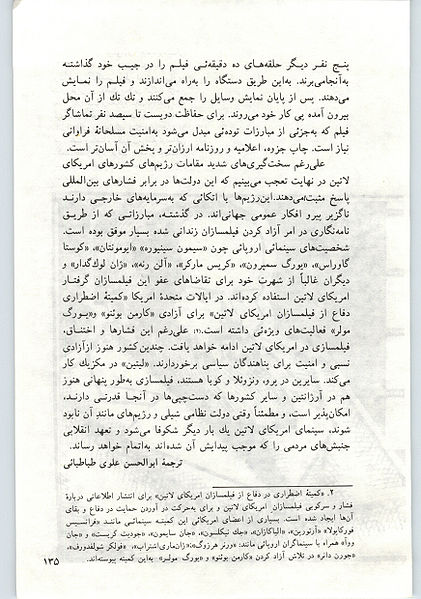 پنج نفر دیگر حلقه‌های ده دقیقه‌ئی فیلم را در جیب خود گذاشته
به‌آنجامی‌برند. به‌این طریق دستگاه را به‌راه می‌اندازند و فیلم را نمایش
می‌دهند. پس از پایان نمایش وسایل را جمع می‌کنند و تك تك از آن محل
بیرون آمده پی کار خود می‌روند. برای حفاظت دویست تا سیصد نفر تماشاگر
فیلم که به‌جزئی از مبارزات توده‌ئی مبدل می‌شود به‌امنیت مسلحانهٔ فراوانی
نیاز است. چاپ جزوه، اعلامیه و روزنامه ارزان‌تر و پخش آن آسان‌تر است.
علی‌رغم سخت‌گیری‌های شدید مقامات رژیم‌های کشورهای امریکای
لاتین در نهایت تعجب می‌بینیم که این دولت‌ها در برابر فشارهای بین‌المللی
پاسخ مثبت می‌دهند. این‌رژیم‌ها با اتکائی که به‌سرمایه‌های خارجی دارند
ناگزیر پیرو افکار عمومی جهانی‌اند. در گذشته، مبارزاتی که از طریق
نامه‌نگاری در امر آزاد کردن فیلمسازان زندانی شده بسیار موفق بوده است.
شخصیت‌های سینمائی اروپائی چون «سیمون سینیوره» «ایومونتان»، «کوستا
گاوراس»، «یورگ سمپرون»، «کریس مارکر»، «آلن رنه»، «ژان لوك‌گدار» و
دیگران غالباً از شهرت خود برای تقاضاهای عفو این فیلمسازان گرفتار
امریکای لاتین استفاده کرده‌اند. در ایالات متحدهٔ امریکا «کمیتهٔ اضطراری
دفاع از فیلمسازان امریکای لاتین» برای آزادی «کارمن بوئنو» و«یورگ
مولر» فعالیت‌های ویژه‌ئی داشته است.(۲) علی‌رغم این فشارها و اختناق،
فیلمسازی در امریکای لاتین ادامه خواهد یافت. چندین‌کشور هنوز ازآزادی
نسبی و امنیت برای پناهندگان سیاسی برخوردارند. «لیتین» در مکزیك کار
می‌کند. سایرین در پرو، ونزوئلا و کوبا هستند، فیلمسازی به‌طور پنهانی هنوز
هم در آرژانتین و سایر کشورها که دست‌چپی‌ها در آنجا قدرتی دارند،
امکان‌پذیر است، و مطمئناً وقتی دولت نظامی شیلی و رژیم‌های مانند آن نابود
شوند، سینمای امریکای لاتین یك بار دیگر شکوفا می‌شود و تعهد انقلابی
جنبش‌های مردمی را که موجب پیدایش آن شده‌اند به‌اتمام خواهد رساند.
ترجمهٔ ابوالحسن علوی طباطبائی
۲. «کمیتهٔ اضطراری در دفاع از فیلمسازان امریکای لاتین» برای انتشار اطلاعاتی دربارهٔ
فشار و سرکوبی فیلمسازان امریکای لاتین و برای به‌حرکت در آوردن حمایت در دفاع و بقای
آن‌ها ایجاد شده است. بسیاری از اعضای امریکائی این کمیته سینمائی مانند «فرانسیس
فورکاپولا» «آرتورپن»، «الیاکازان»، «جك نیکلسون»، «جان سایمون»، «جودیت کریست» و «جان
وو‌آ» همراه با سینماگران اروپائی مانند: «ورنر هرزوگ»، «ژان‌ماری‌اشتراب»، «فولکر شولفدورف»،
«جورن دانر» در تلاش آزاد کردن «کارمن بوئنو» و «یورگ مولر» به‌این کمیته پیوسته‌اند.
۱۳۵